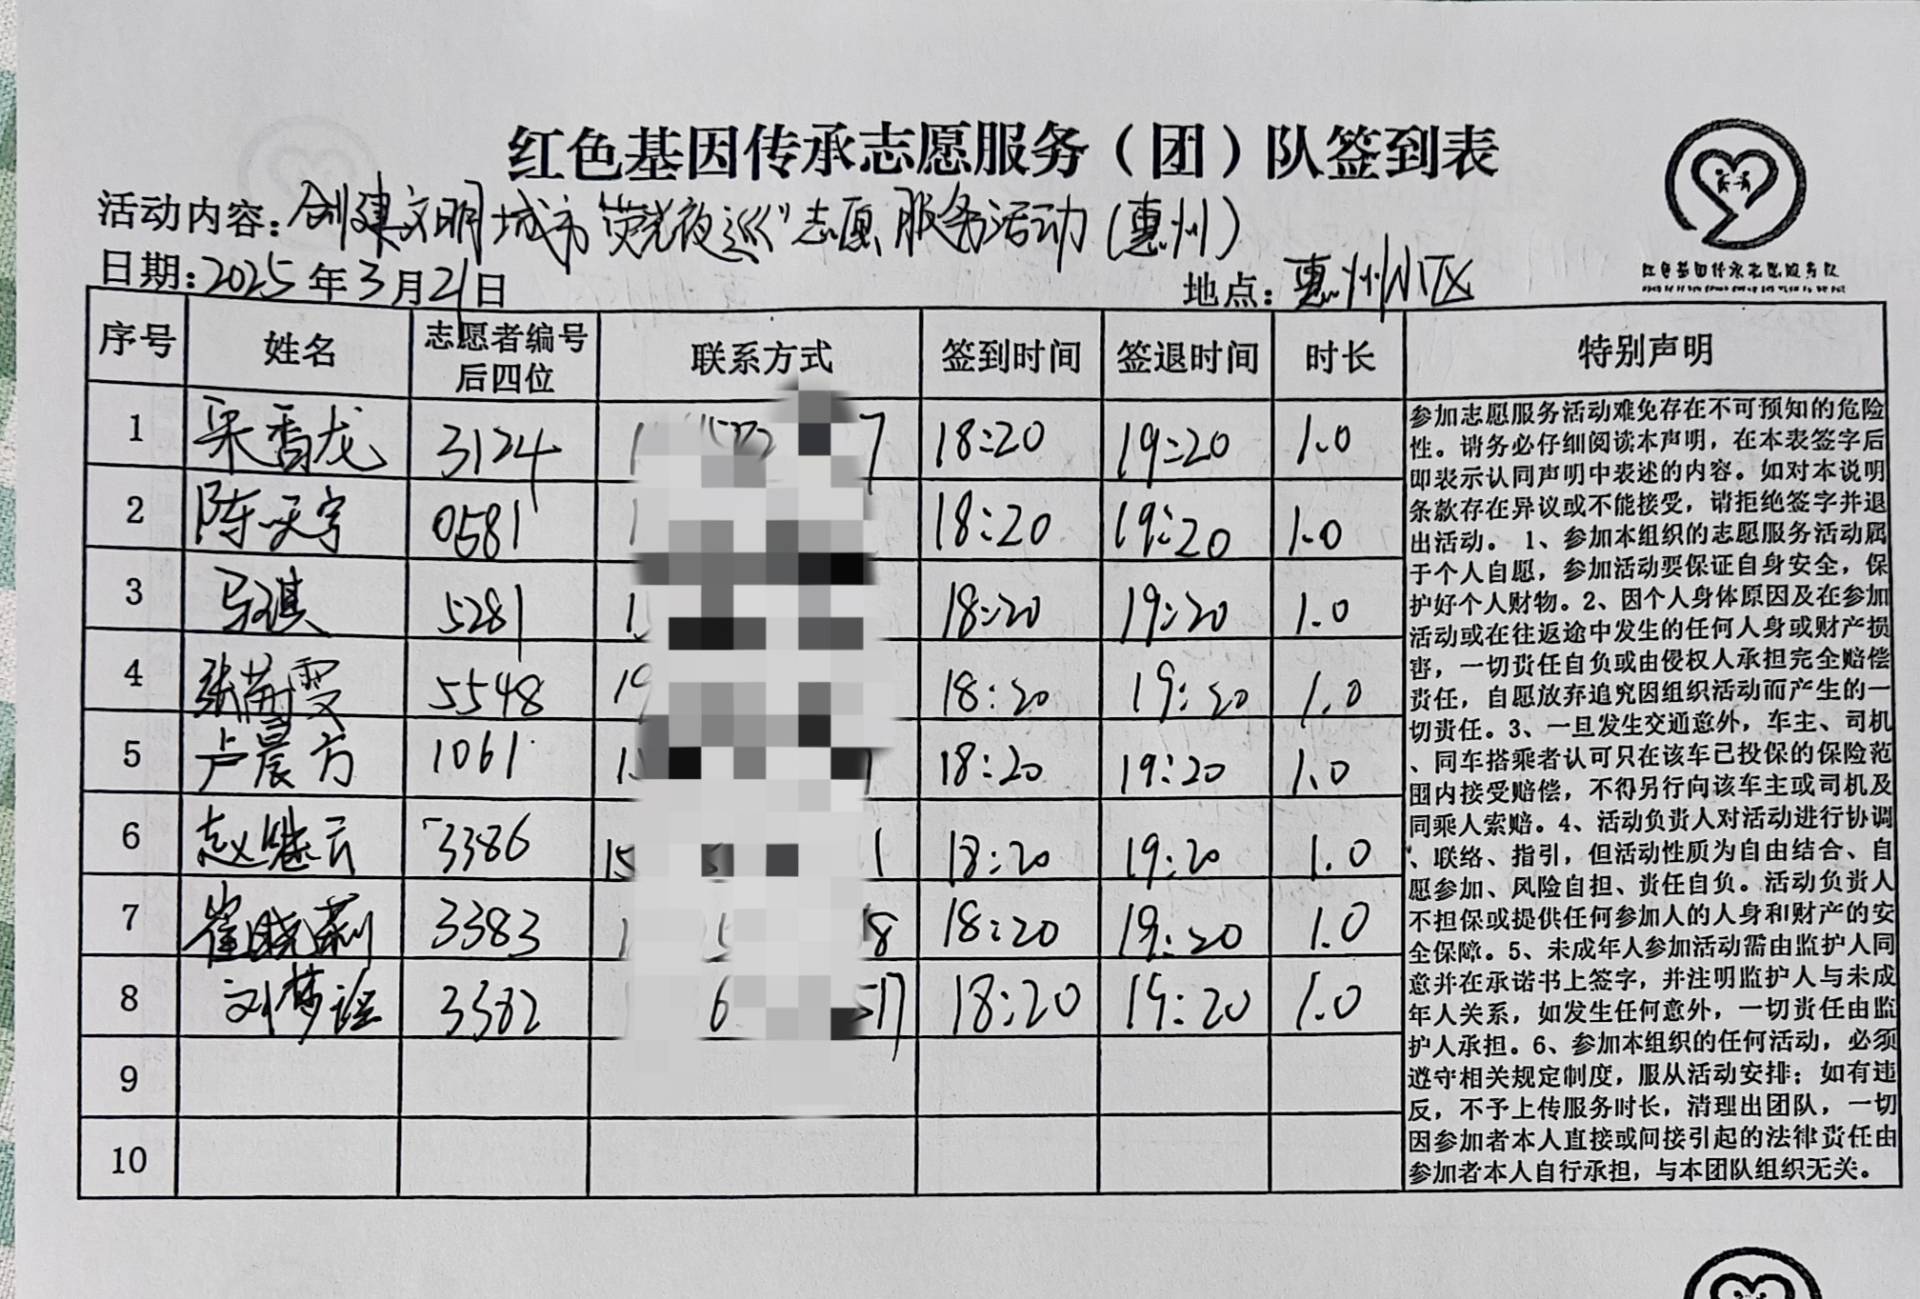 红色基因传承志愿服务（团）队签到表
活动内容：创建文明城市"荧光夜巡"志愿服务活动（惠州）
日期：2025年3月21日
地点：惠州小区
红色基因传承志愿服务队
序号 姓名 志愿者编号后四位 联系方式 签到时间 签退时间 时长 特别声明
1 宋香龙 3124 18:20 19:20 1.0
2 陈天宇 0581 18:20 19:20 1.0
3 马琪 5281 18:20 19:20 1.0
4 张雯 5548 18:20 19:20 1.0
5 卢晨方 1061 18:20 19:20 1.0
6 赵继云 3386 18:20 19:20 1.0
7 崔晓莉 3383 18:20 19:20 1.0
8 刘梦谣 3382 18:20 19:20 1.0
9
10
参加志愿服务活动难免存在不可预知的危险
性。请务必仔细阅读本声明，在本表签字后
即表示认同声明中表述的内容。如对本说明
条款存在异议或不能接受，请拒绝签字并退
出活动。1、参加本组织的志愿服务活动属
于个人自愿，参加活动要保证自身安全，保
护好个人财物。2、因个人身体原因及在参加
活动或在往返途中发生的任何人身或财产损
害，一切责任自负或由侵权人承担完全赔偿
责任，自愿放弃追究因组织活动而产生的一
切责任。3、一旦发生交通意外，车主、司机
、同车搭乘者认可只在该车已投保的保险范
围内接受赔偿，不得另行向该车主或司机及
同乘人索赔。4、活动负责人对活动进行协调
、联络、指引，但活动性质为自由结合、自
愿参加、风险自担、责任自负。活动负责人
不担保或提供任何参加人的人身和财产的安
全保障。5、未成年人参加活动需由监护人同
意并在承诺书上签字，并注明监护人与未成
年人关系，如发生任何意外，一切责任由监
护人承担。6、参加本组织的任何活动，必须
遵守相关规定制度，服从活动安排；如有违
反，不予上传服务时长，清理出团队，一切
因参加者本人直接或间接引起的法律责任由
参加者本人自行承担，与本团队组织无关。